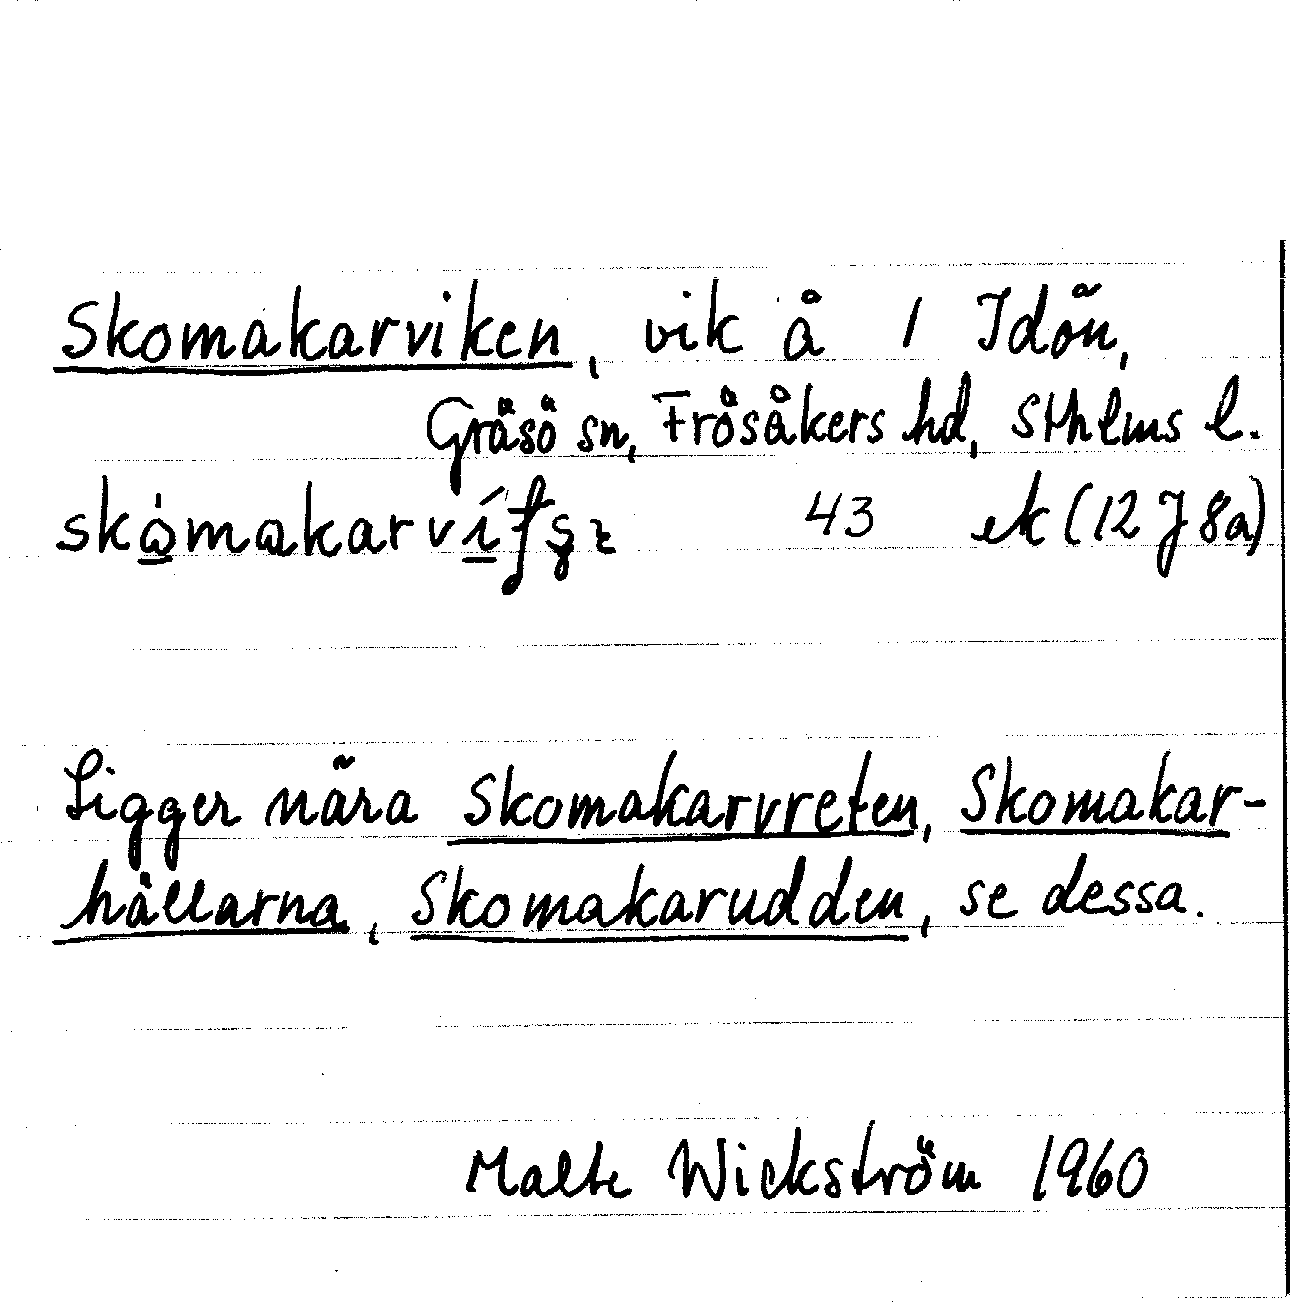 Skomakarviken, vik å 1 Idön,
Gräsö sn, Frösåkers hd, Sthlms l.
43 ek (12 J 8a)
Ligger nära Skomakarvreten, Skomakar-
hällarna, Skomakarudden, se dessa.
Malte Wickström 1960